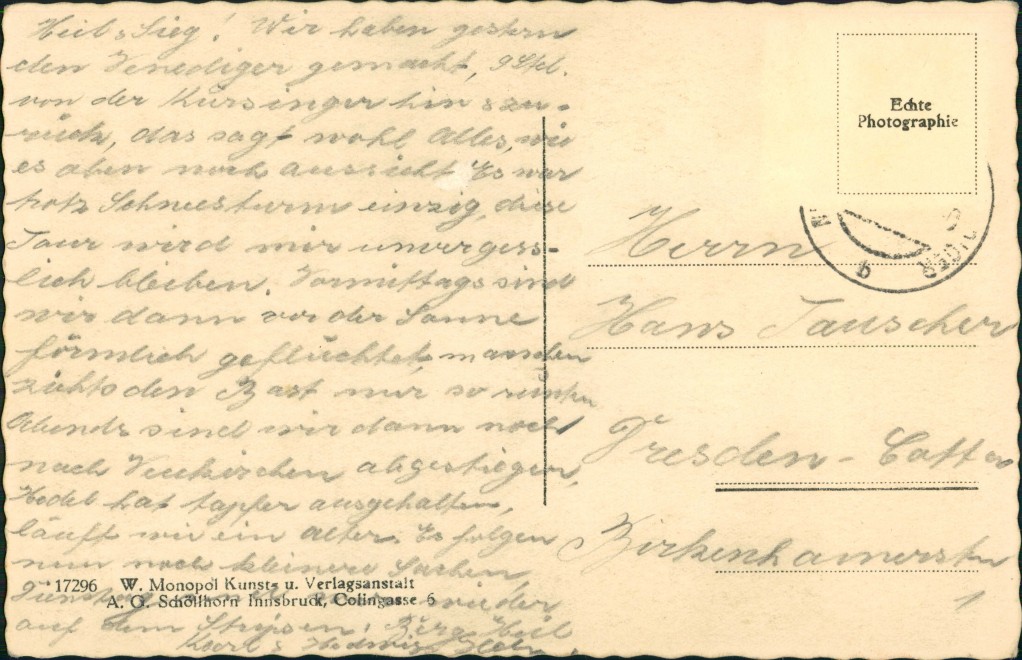 Heil & Sieg! Wir haben gestern
den Venediger gemacht, 9 Std.
von der Kürsinger hin & zu-
rück, das sagt wohl Alles, wie
es aber noch aussieht. Es war
trotz Schneesturm einzig, diese
Tour wird mir unvergess-
lich bleiben. Vormittags sind
wir dann vor der Sonne
förmlich geflüchtet, manchen
ziehts den Bast nur so runter
Abends sind wir dann noch
nach Neukirchen abgestiegen,
Hedel hat tapfer ausgehalten,
läuft wie ein Alter. Es folgen
nun noch kleinere Sachen
Dienstag wieder
auf dem Stripsen! Berg Heil
Karl & Hedwig
17296 W. Monopol Kunst- u. Verlagsanstalt
A. G. Schöllhorn Innsbruck, Colingasse 6
Echte
Photographie
b
Herrn
Hans Tauscher
Dresden-Cotta
Birkenhainerstr
1